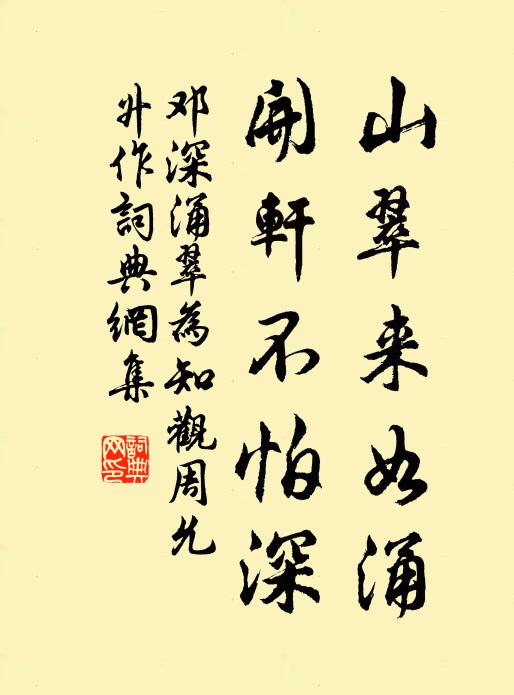 山翠来如涌
開軒不怕深
邓深涌翠為知觀周允
升作詞典網集
詞典網印